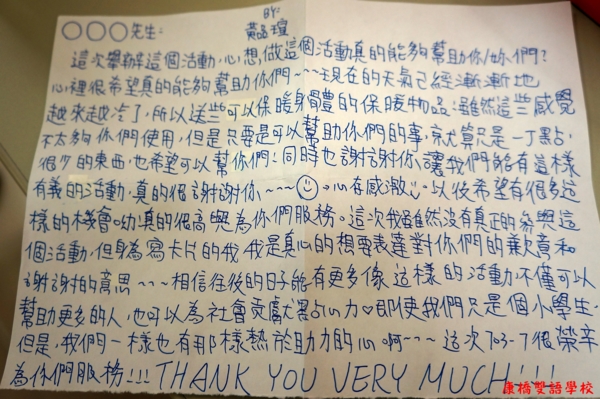 BY:
〇〇〇先生: 黃品瑄
這次舉辦這個活動,心想,做這個活動真的能夠幫助你/妳們?
心裡很希望真的能夠幫助你們~~現在的天氣已經漸漸地
越來越冷了,所以送些可以保暖身體的保暖物品,雖然這些感覺
不太夠你們使用,但是只要是可以幫助你們的事,就算只是一丁點,
很少的東西,也希望可以幫你們!同時也謝謝你,讓我們能有這樣
有義的活動,真的很謝謝你~~~☺。心存感激。以後希望有很多這
樣的機會呦!真的很高興為你們服務。這次我雖然沒有真正的參與這
個活動,但身為寫卡片的我,我是真心的想要表達對你們的歉意和
謝謝的意思~~~相信往後的日子能有更多像這樣的活動,不僅可以
幫助更多的人,也可以為社會貢獻點心力♡即使我們只是個小學生,
但是,我們一樣也有那樣熱於助力的心啊~~~這次703-7很榮幸
為你們服務!!!THANK YOU VERY MUCH!!!
康橋雙語學校